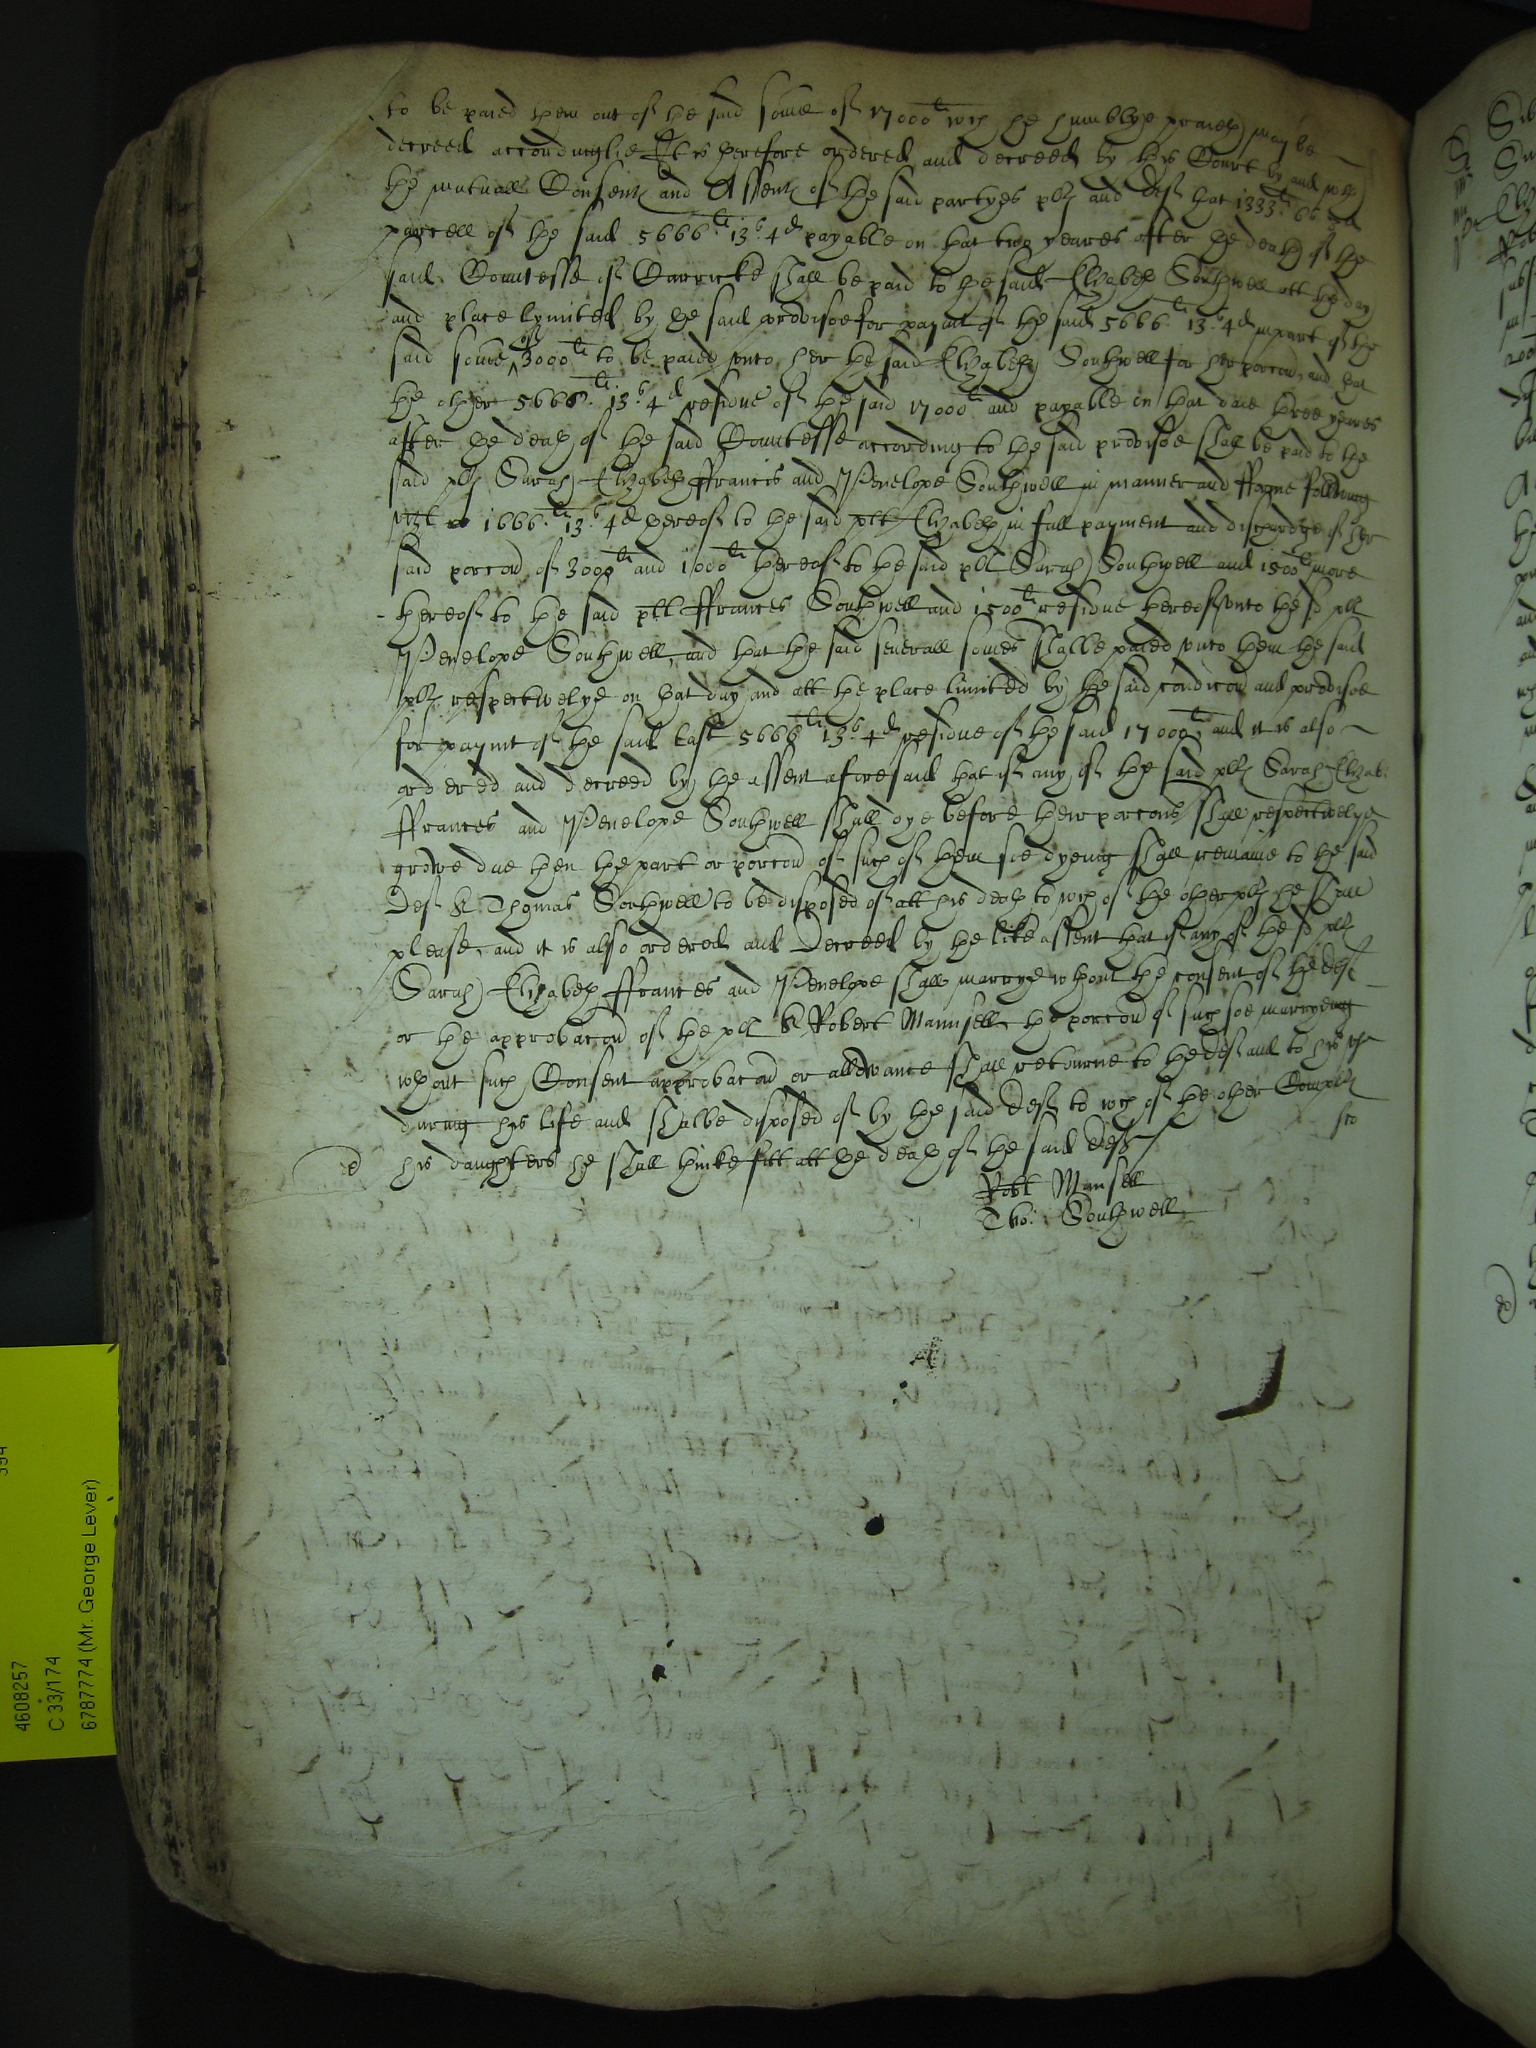 to be paied them out of the said some of 17000li wch he humblye praieth may be
decreed accordinglie It is therefore ordered and decreed by this Court by and wth
the mutuall Consent and Assent of the said partyes plt and deft that 1333li 6s 8d
parcell of the said 5666li 13s 4d payable on that two yeares after the death of the
said Countesse of Carricke shall be paid to the said Elizabeth Southwell att the day
and place lymited by the said prvisoe for paymt of the said 5666li 13s 4d in part of the
said some of 3000li to be paied vnto her the said Elizabeth Southwell for her porcon, and that
the other 5666li 13s 4d residue of the said 17000li and payable in that daie three yeares
after the death of the said Countesse according to the said provisoe shall be paid to the
said plt Sarah Elizabeth ffrancis and Penelope Southwell in manner and fforme following
vizt 1666li 13s 4d thereof to the said plt Elizabeth in full payment and discharge of her
said porcon of 3000li and 1000li thereof to the said plt Sarah Southwell and 1500li more
thereof to the said plt ffrances Southwell and 1500li residue thereof vnto the sd plt
Penelope Southwell, and that the said seuerall somes shalbe paied vnto them the said
plts respectivelye on that day and att the place limited by the said condicon and provisoe
for paymt of the said last 5666li 13s 4d residue of the said 17000li, and it is also
ordered and decreed by the assent aforesaid that if any of the said plts Sarah Elizab:
ffrances and Penelope Southwell shall dye before their porcons shall respectivelye
growe due then the part or porcon of such of them soe dyeing shall remaine to the said
Deft Sr Thomas Southwell to be disposed of att his death to wch of the other plts he shall
please, and it is also ordered and Decreed by the like assent that if any of the sd plts
Sarah Elizabeth ffrances and Penelope shall marrye wthout the consent of the deft
or the approbacon of the plt Sr Robert Mannsell, the porcon of such soe marryeing
wthout such Consent approbacon or allowance shall retourne to the deft and to his vse
during his life and shalbe disposed of by the said deft to wch of the other Complts
his daughters he shall thinke fitt att the death of the said deft
Robt Mansell
Tho: Southwell
4608257
C 33/174
6787774 (Mr. George Lever)